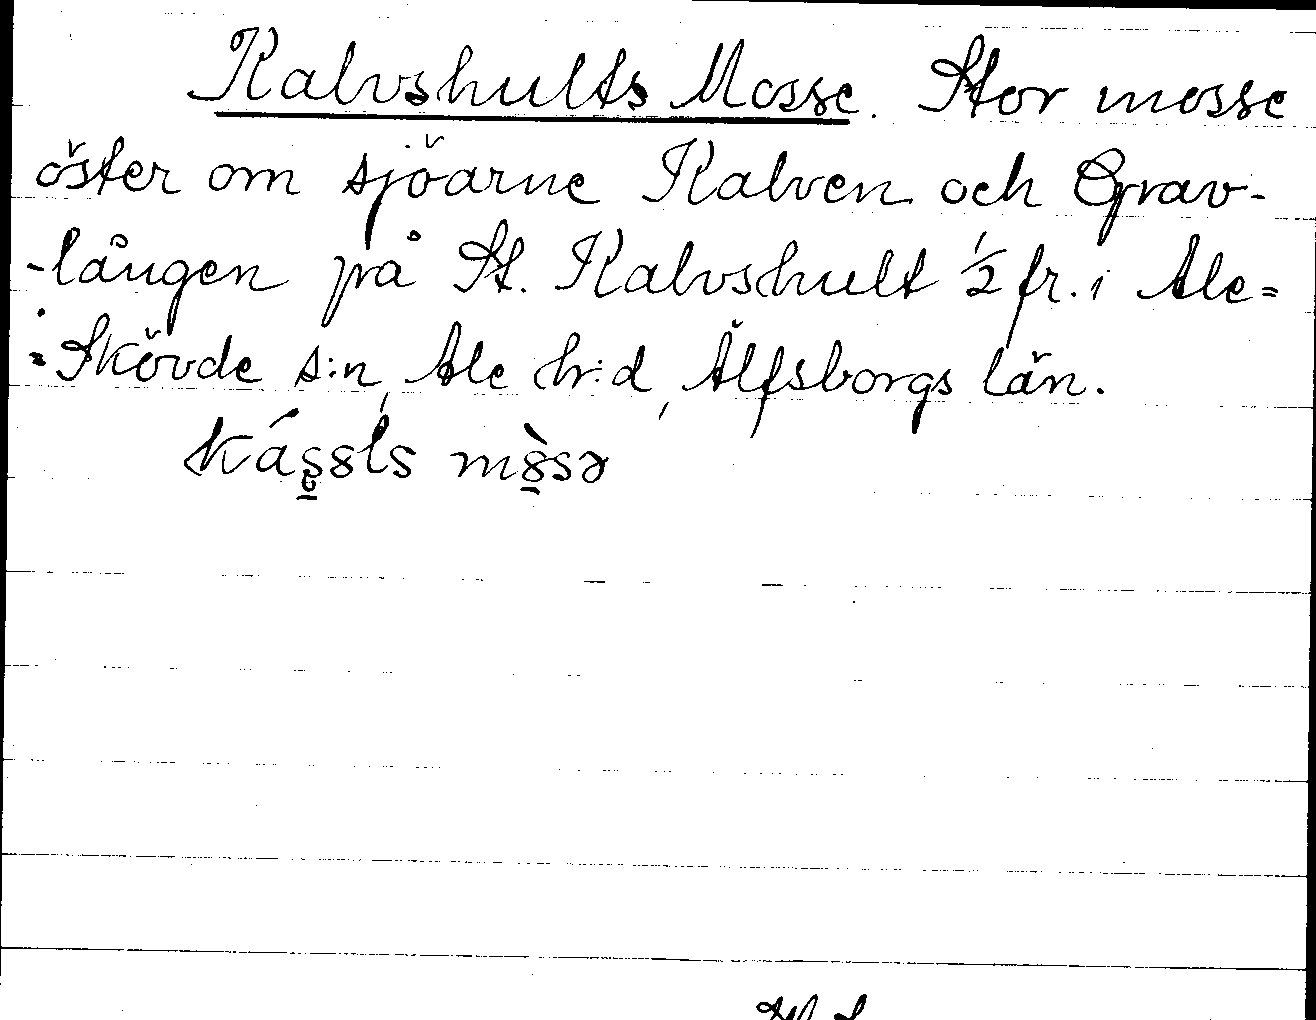 Kalvshults Mosse. Stor mosse
öster om sjöarne Kalven och Grav-
-lången på St. Kalvshult 1/2 fr. i Ale=
=Skövde s:n, Ale hr:d, Älfsborgs län.